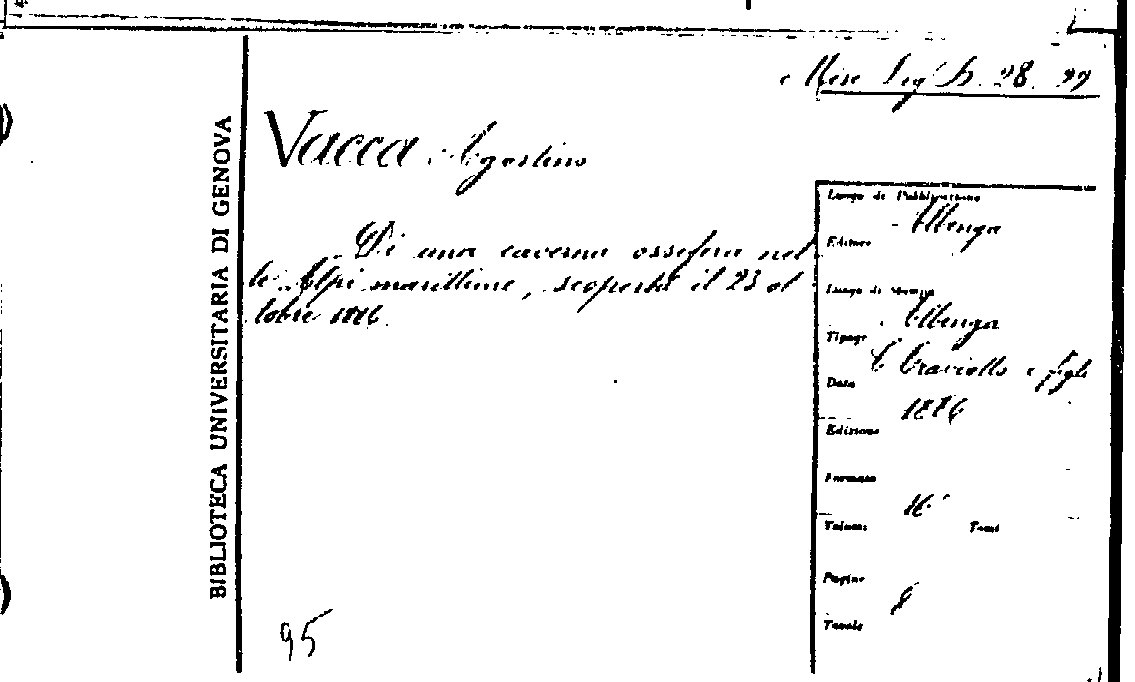 Misc Lig B. 28. 22
BIBLIOTECA UNIVERSITARIA DI GENOVA
Vacca Agostino
Di una caverna ossifera nel
le Alpi marittime, scoperta il 23 ot
tobre 1886
Luogo di Pubblicazione
Albenga
Editore
Luogo di stampa
Albenga
Tipogr
T Craviotto e figli
Data
1886
Edizione
Formato
16°
Volumi Tomi
Pagine
8
Tavole
95